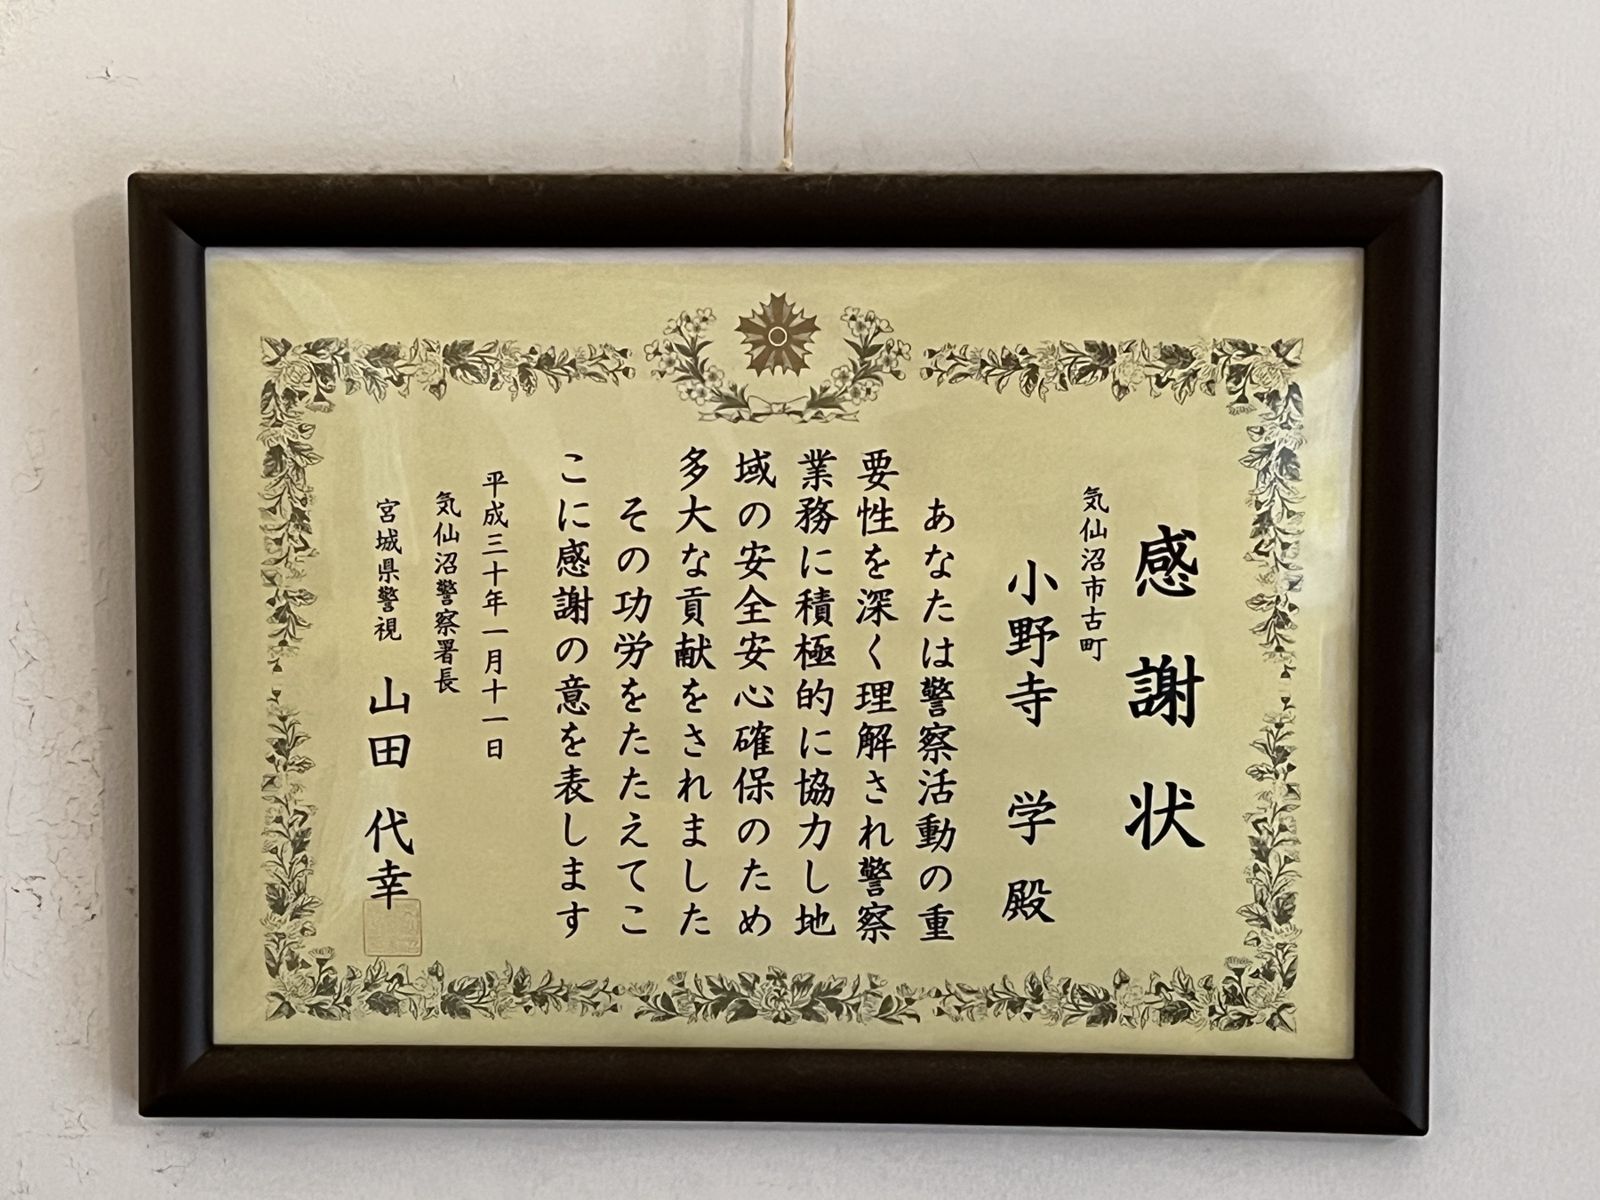 感謝状
気仙沼市古町
小野寺 学 殿
あなたは警察活動の重
要性を深く理解され警察
業務に積極的に協力し地
域の安全安心確保のため
多大な貢献をされました
その功労をたたえてこ
こに感謝の意を表します
平成三十年一月十一日
気仙沼警察署長
宮城県警視 山田代幸